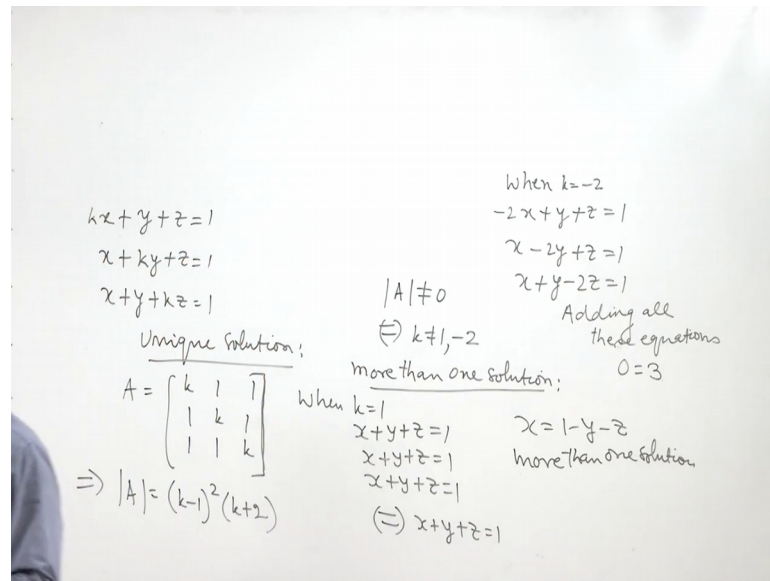 kx+y+z=1
x+ky+z=1
x+y+kz=1
Unique solution:
A = [k 1 1
1 k 1
1 1 k]
⇒ |A| = (k-1)²(k+2)
|A|≠0
⇔ k≠1,-2
more than one solution:
When k=1
x+y+z=1
x+y+z=1
x+y+z=1
⇔ x+y+z=1
x=1-y-z
more than one solution
When k=-2
-2x+y+z=1
x-2y+z=1
x+y-2z=1
Adding all
these equations
0=3